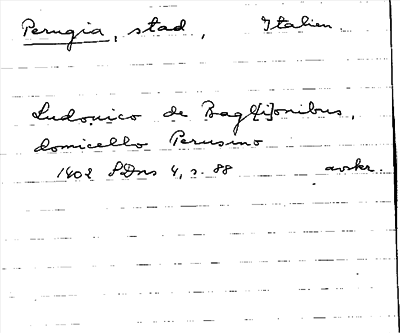 Perugia, stad, Italien.
Ludovico de Bagl[i]onibus,
domicello Perusino
1402 SDns 4, s. 88 avskr.